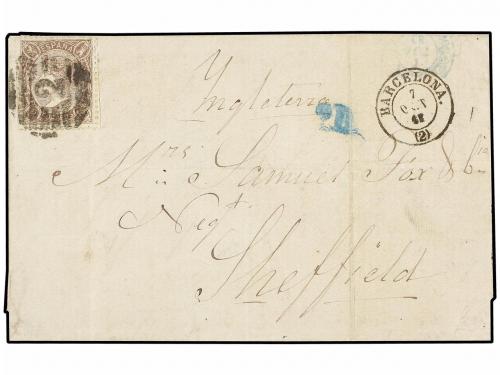 ESPAÑA
2
Ynglaterra
BARCELONA.
7
OCT
(2)
Mrs Samuel Fox &
Negt
Sheffield